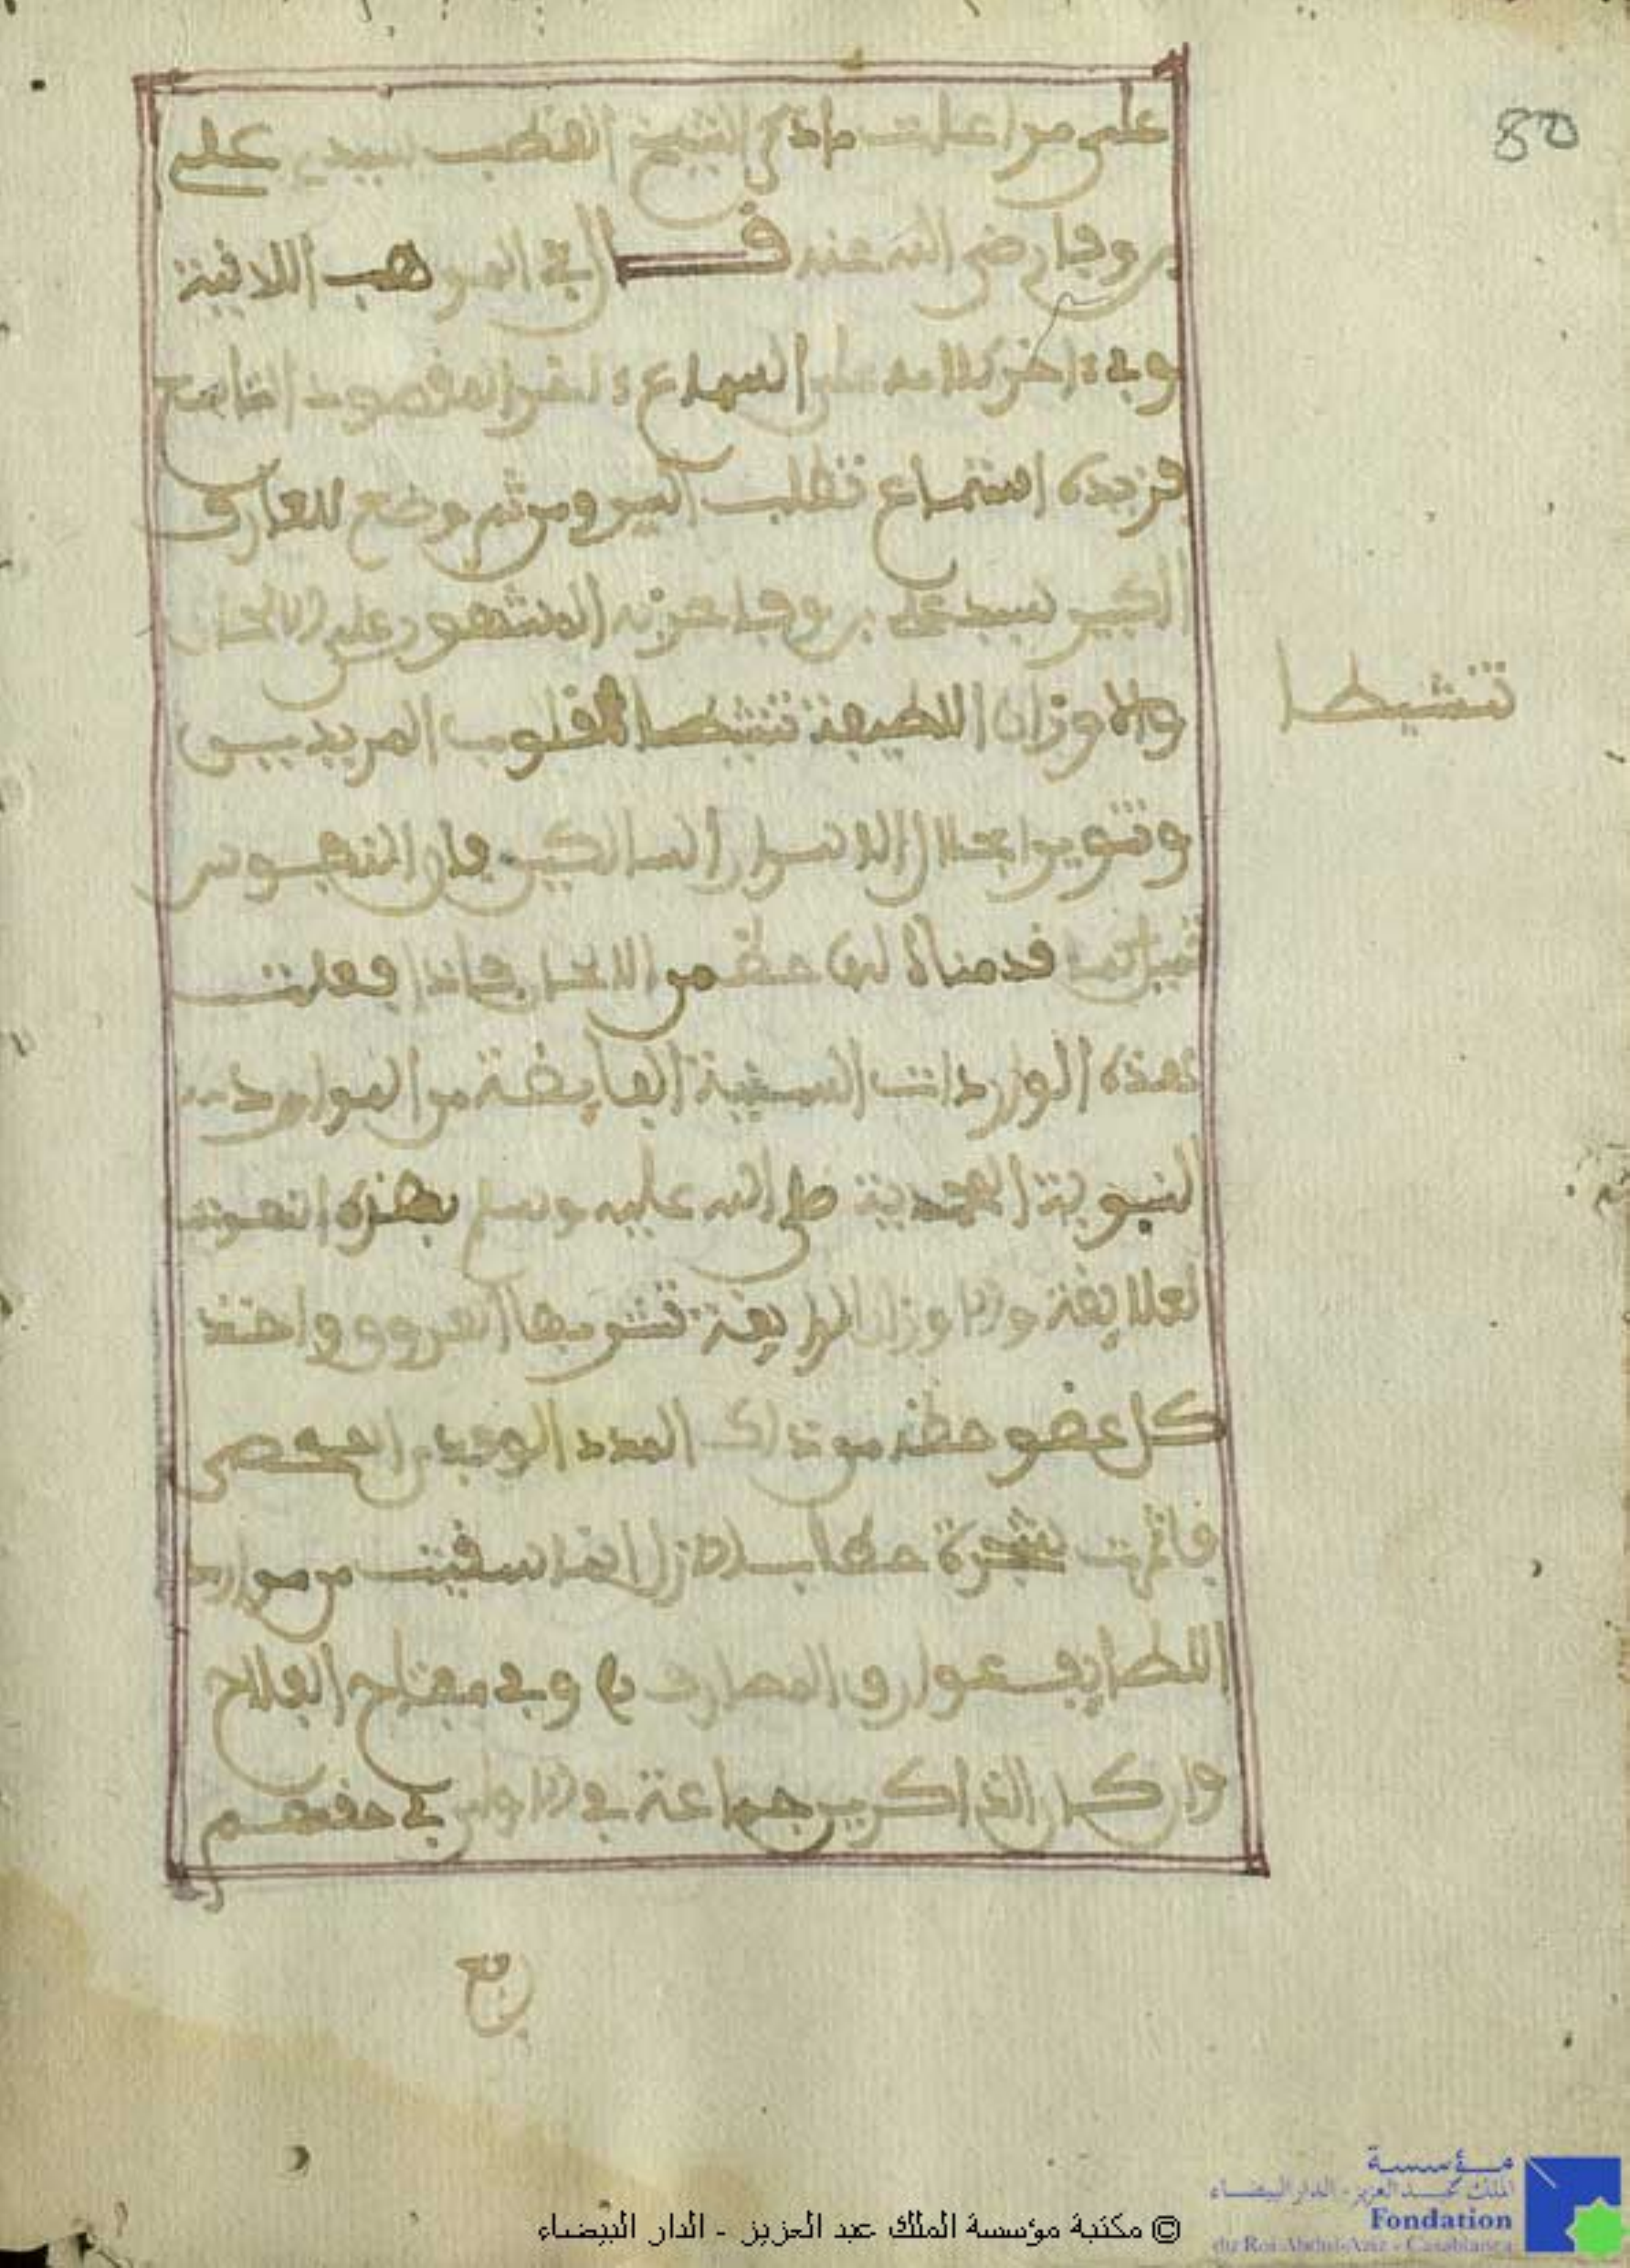 80
على من اعلت ماذكر الشيخ القطب سيدي علي
بن وفا رضي الله عنه قال في المواهب اللدنية
وفي ءاخر كلامه على السماع
فزيدة استماع تطلب السر ومن ثم وضع للعارف
الكبير سيد علي بن وفا حزبه المشهور على الالحان
والاوزان اللطيفة تنشيطا لقلوب المريدين
تنشيطا
وتنويرا لاسرار السالكين فان النفوس
كما قدمناه لها حظ من الالحان فاذا فعلت
هذه الواردات السنية الفايضة من الموارد
النبوية المحمدية صلى الله عليه وسلم بهذه النغمة
الفايقة والاوزان الرايقة تشربها العروق واخذ
كل عضو حظه من ذلك المدد الوفدي المحمدي
فاثمرت شجرة خطاب الازل بما سقيت من موارد
اللطايف عوارف المعارف وفي مفتاح الفلاح
وان كان الذاكرين جماعة في الاولى في حقهم
رفع
© مكتبة مؤسسة الملك عبد العزيز - الدار البيضاء
مؤسسة
الملك عبد العزيز - الدار البيضاء
Fondation
du Roi Abdul-Aziz - Casablanca